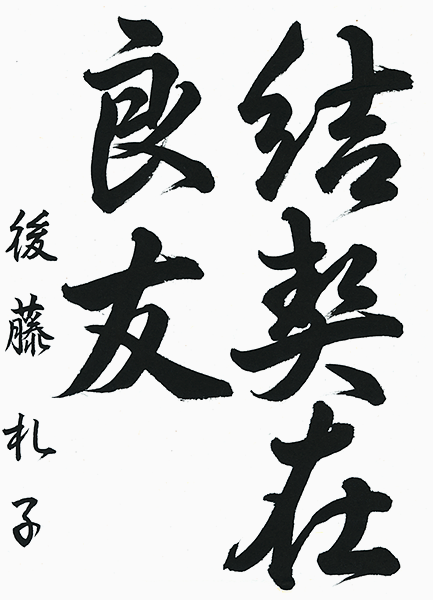 結契在
良友
後藤札子